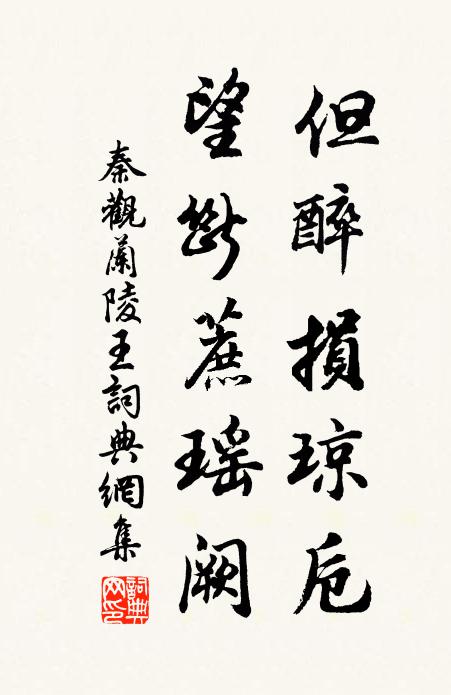 但醉損琼卮
望斷蔗瑤闕
秦觀蘭陵王詞典網集
詞典
网印